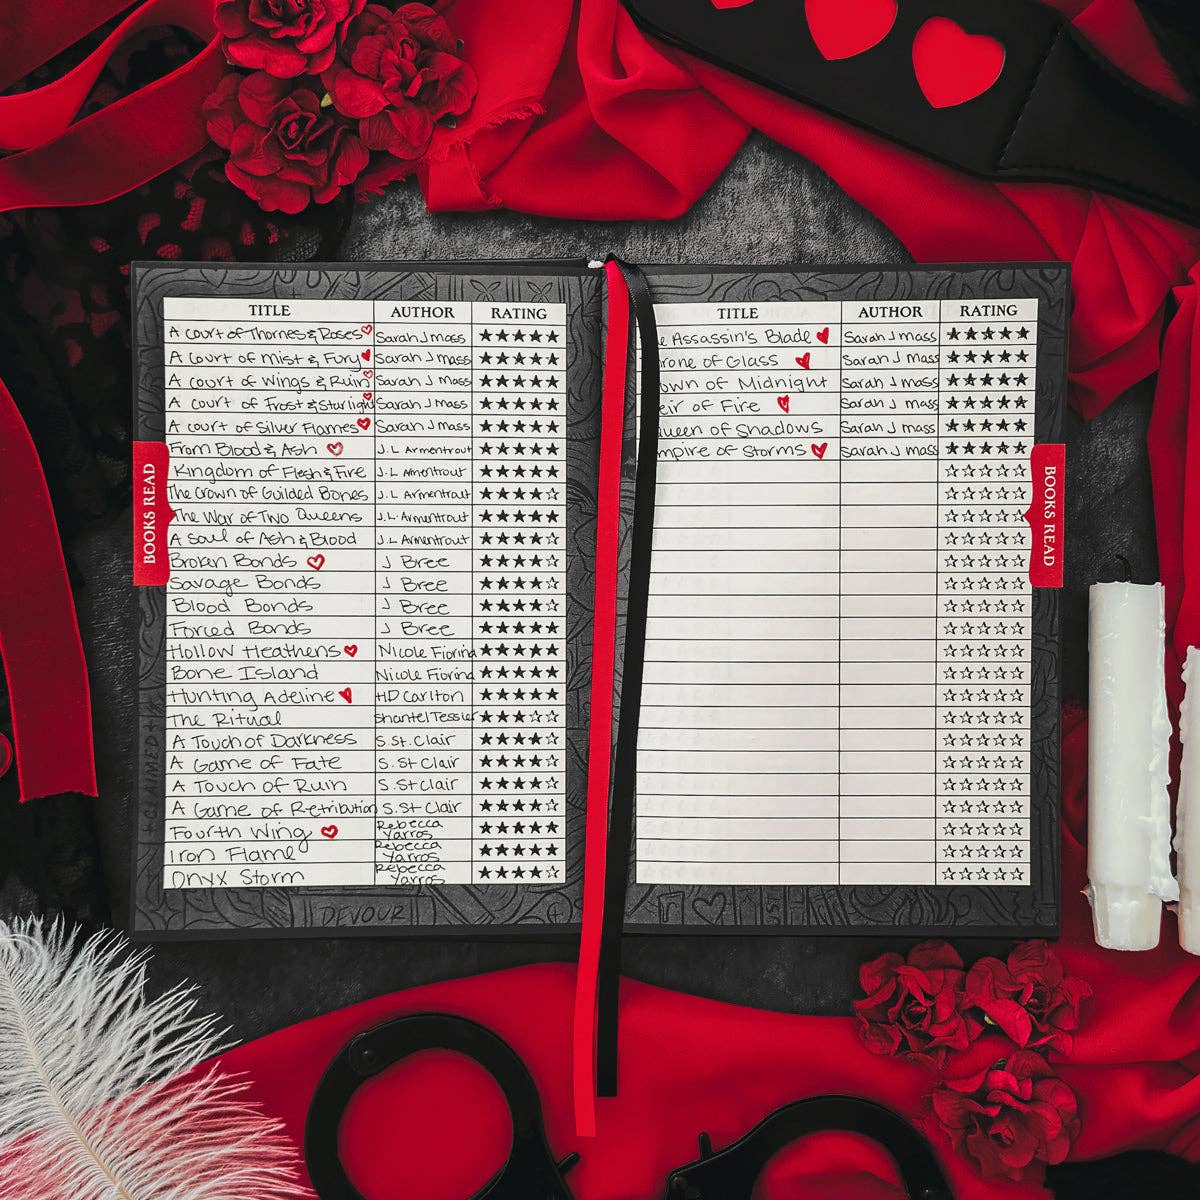 TITLE AUTHOR RATING
A Court of Thornes & Roses Sarah J Mass
A Court of Mist & Fury Sarah J Mass
A Court of Wings & Ruin Sarah J Mass
A Court of Frost & Starlight Sarah J Mass
A Court of Silver Flames Sarah J Mass
From Blood & Ash J.L Armentrout
Kingdom of Flesh & Fire J.L Armentrout
The Crown of Guilded Bones J.L Armentrout
The War of Two Queens J.L Armentrout
A Soul of Ash & Blood J.L Armentrout
Broken Bonds J Bree
Savage Bonds J Bree
Blood Bonds J Bree
Forced Bonds J Bree
Hollow Heathens Nicole Fiorina
Bone Island Nicole Fiorina
Hunting Adeline HD Carlton
The Ritual Shantel Tessier
A Touch of Darkness S.St. Clair
A Game of Fate S.St Clair
A Touch of Ruin S.St Clair
A Game of Retribution S.St Clair
Fourth Wing Rebecca Yarros
Iron Flame Rebecca Yarros
Onyx Storm Rebecca Yarros
BOOKS READ
CLAIMED
DEVOUR
TITLE AUTHOR RATING
e Assassin's Blade Sarah J Mass
rone of Glass Sarah J Mass
own of Midnight Sarah J Mass
eir of Fire Sarah J Mass
ueen of Shadows Sarah J Mass
mpire of Storms Sarah J Mass
BOOKS READ